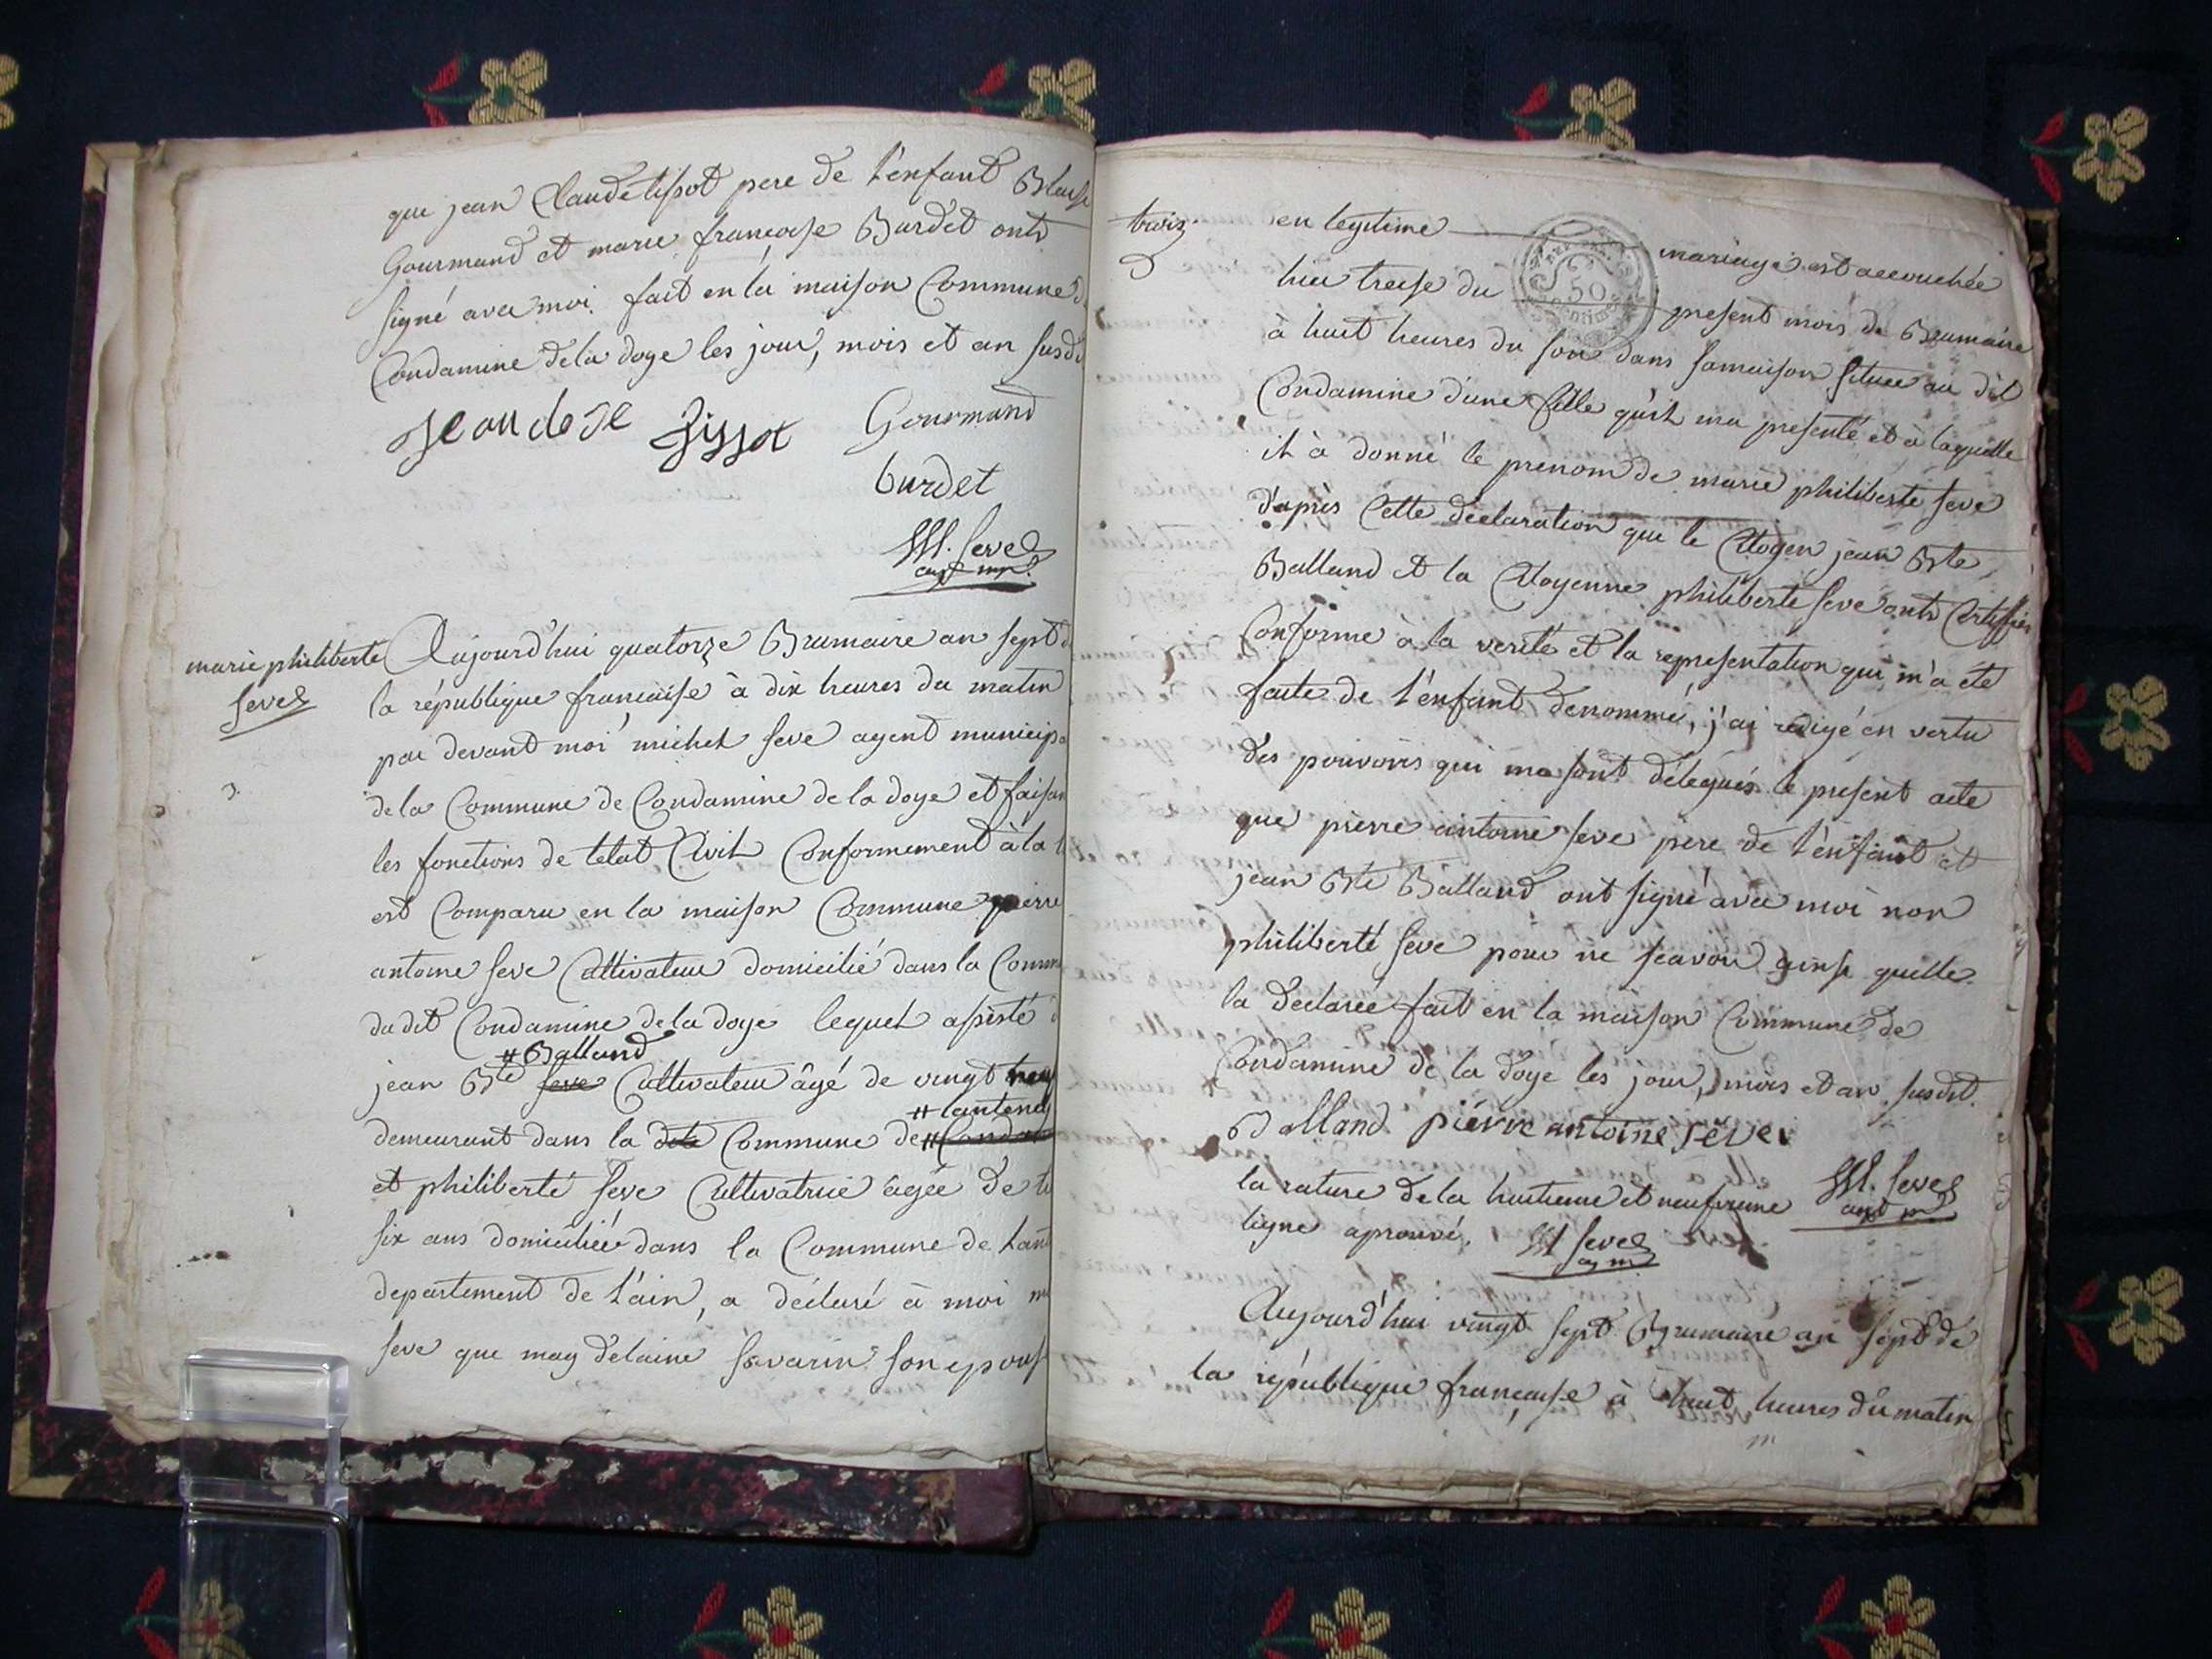 que jean Claude tissot pere de l'enfant Blaise
Gourmand et marie francoise Burdet ont
signé avec moi. fait en la maison Commune d
Condamine dela doye les jour, mois et an susdi
tissot Gourmand
burdet
M. Seve
agt mpl.
marie philiberte
seve
3.
Aujourd'hui quatorze Brumaire an sept d
la république francaise à dix heures du matin
par devant moi michel seve agent municipa
de la Commune de Condamine de la doye et faisan
les fonctions de l'etat Civil Conformement à la l
est Comparu en la maison Commune pierre
antoine seve Cultivateur domicilié dans la Comm
du dit Condamine de la doye lequel assisté d
# Balland
jean Bte seve Cultivateur âgé de vingt neuf
# lantenay
demeurant dans la dite Commune de # Condam
et philiberte seve Cultivatrice agée de
six ans domiciliée dans la Commune de lan
departement de l'ain, a déclaré à moi
seve que magdelaine savarin son epous
trois
en legitime mariage est accouchée
50 Centimes
hier treise du present mois de Brumaire
à huit heures du soir dans sa maison situee au dit
Condamine d'une fille qu'il ma presenté et à laquelle
il à donné le prenom de marie philiberte seve
d'après Cette déclaration que le Citoyen jean Bte
Balland et la Citoyenne philiberte seve ont Certiffiés
Conforme à la verité et la representation qui m'à été
faite de l'enfant denommé, j'ai redigé en vertu
des pouvoirs qui me sont délegués le present acte
que pierre antoine seve pere de l'enfant et
jean Bte Balland ont signé avec moi non
philiberte seve pour ne scavoir ainsi quelle
la declareé fait en la maison Commune de
Condamine de la doye les jour, mois et an susdit.
Balland pierre antoine seve
la rature de la huitieme et neufvieme
M. Seve
agt m
ligne aprouvé.
M Seve
ag m
Aujourd'hui vingt sept Brumaire an sept de
la république francaise à huit heures du matin